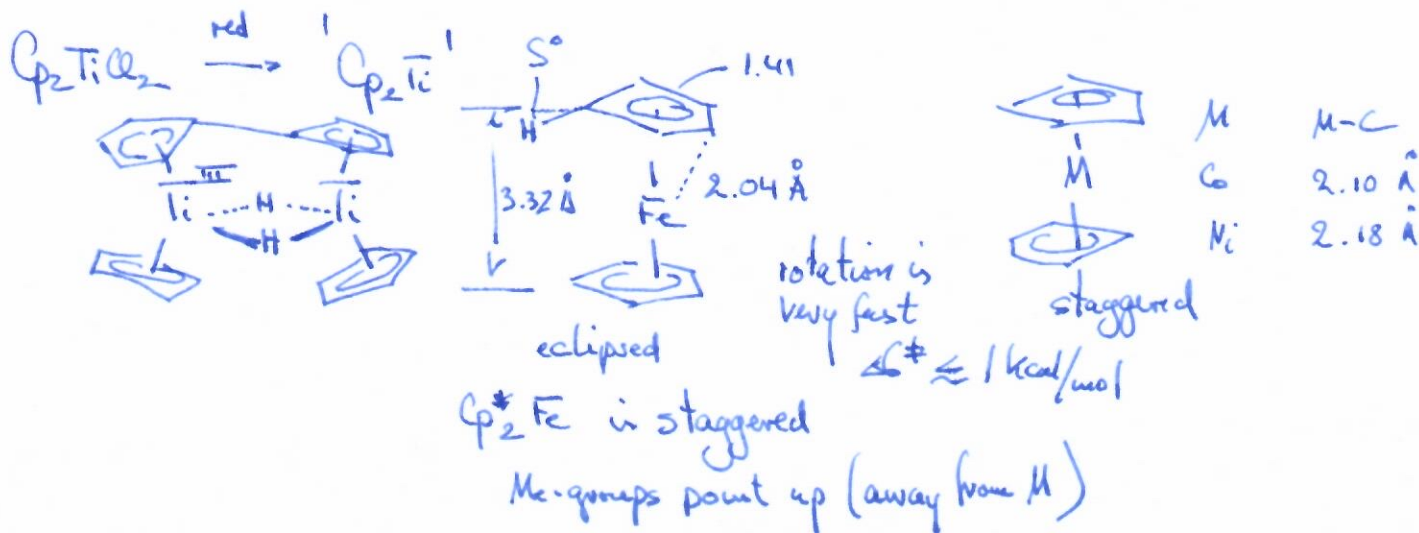 Cp2TiCl2 red → 'Cp2Ti'
5°
H
1.41
III
Ti H Ti
H
3.32 Å
Fe
2.04 Å
eclipsed
rotation is
very fast
ΔG‡ ≲ 1 kcal/mol
M
staggered
M M-C
Co 2.10 Å
Ni 2.18 Å
Cp*2Fe is staggered
Me-groups point up (away from M)